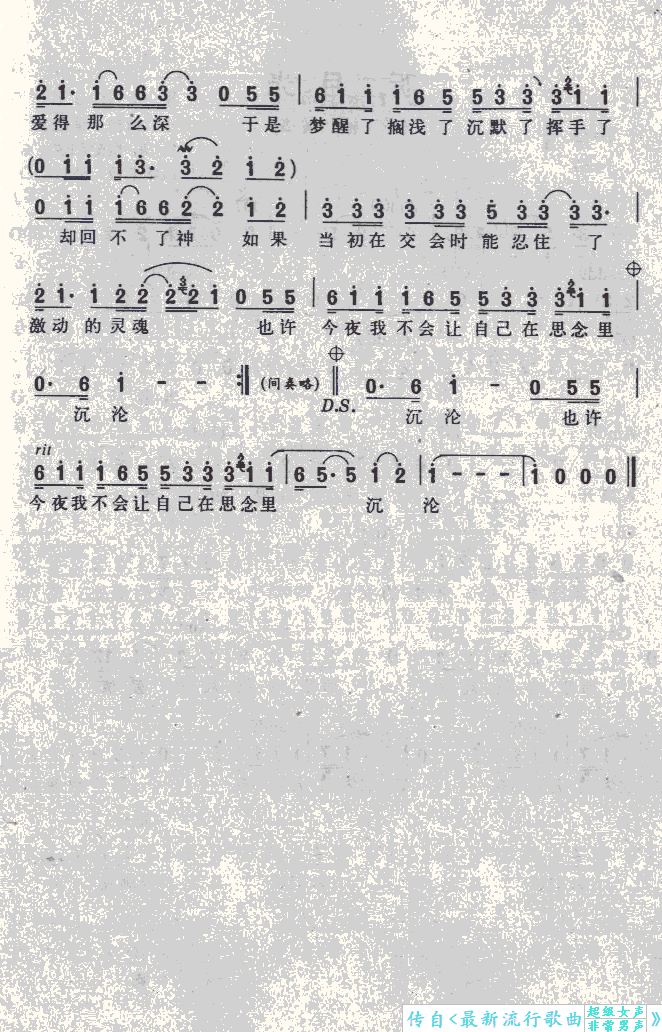 2 1· 1 6 6 3 3 0 5 5 | 6 1 1 1 6 5 5 3 3 3 2 1 1 |
爱得那么深 于是 梦醒了搁浅了沉默了挥手了
(0 1 1 1 3· 3 2 1 2)
0 1 1 1 6 6 2 2 1 2 | 3 3 3 3 3 3 5 3 3 3 3· |
却回不了神 如果 当初在交会时能忍住了
2 1· 1 2 2 2 3 2 1 0 5 5 | 6 1 1 1 6 5 5 3 3 3 2 1 1 |
激动的灵魂 也许 今夜我不会让自己在思念里
0· 6 1 - - :‖ (间奏略) ‖ D.S. 0· 6 1 - 0 5 5 |
沉沦 沉沦 也许
rit
6 1 1 1 6 5 5 3 3 3 2 1 1 | 6 5· 5 1 2 | 1 - - - | 1 0 0 0 ‖
今夜我不会让自己在思念里 沉 沦
传自<最新流行歌曲 超级女声 非常男声 》